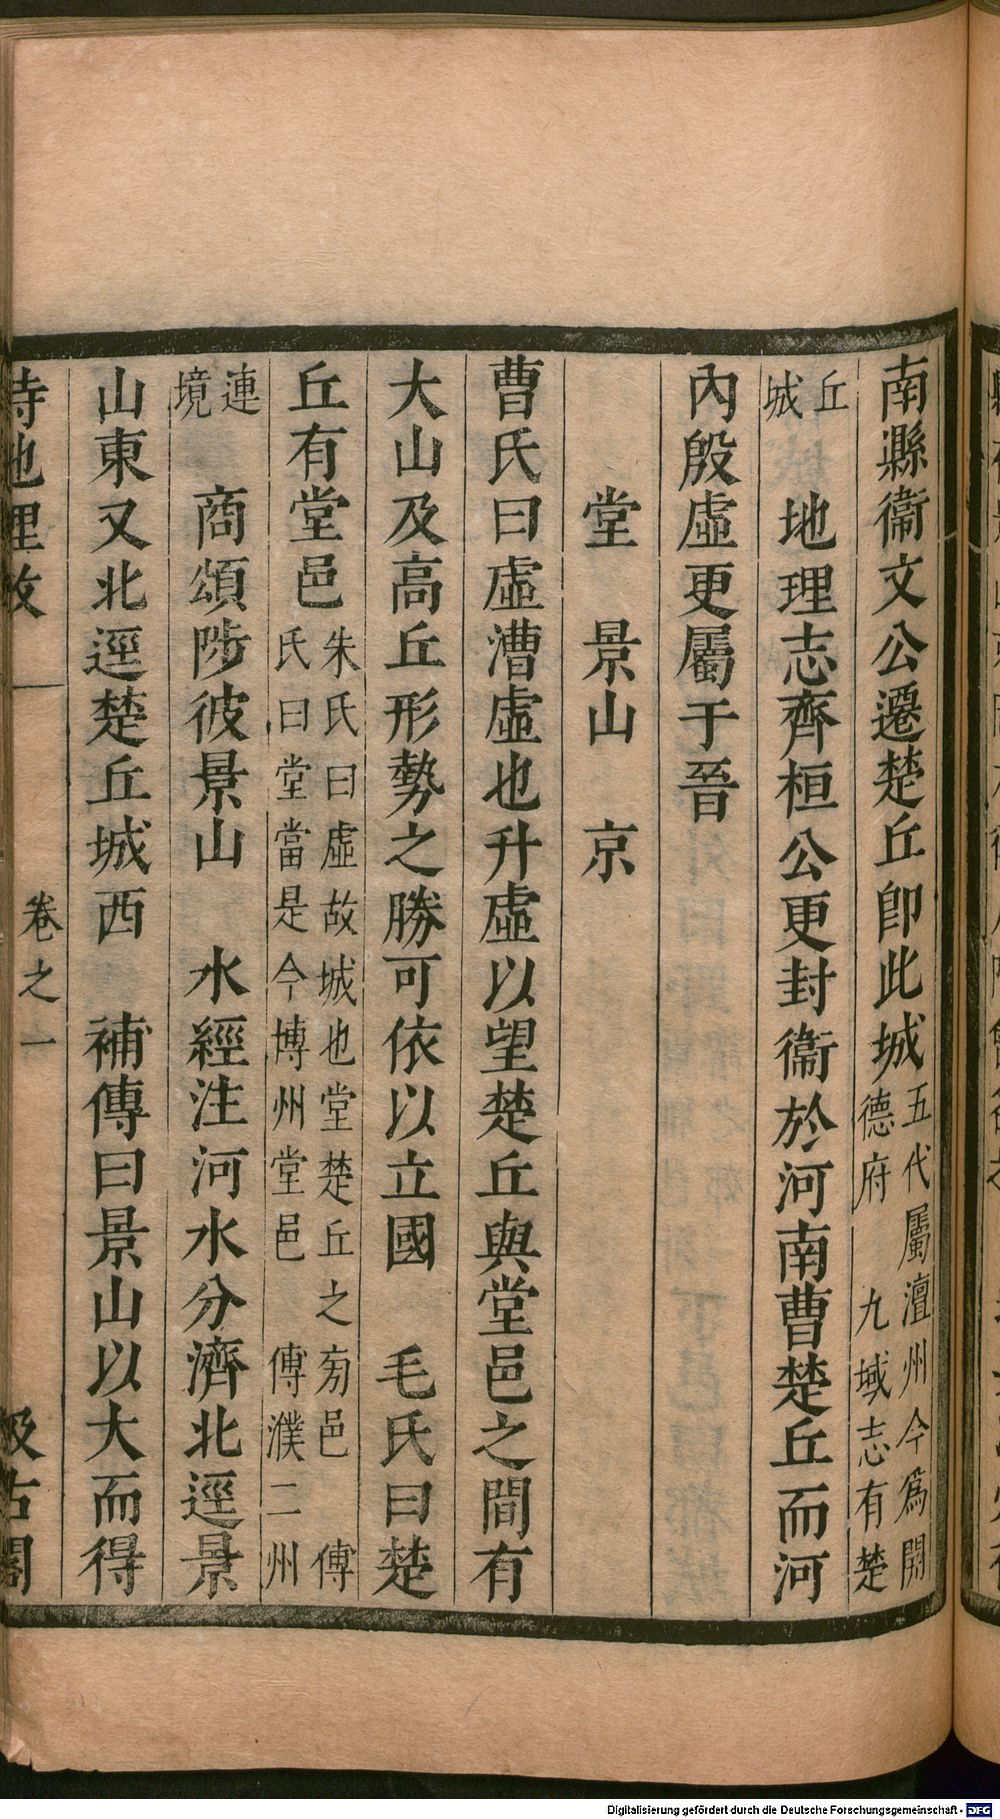 南縣衞文公遷楚丘卽此城五代屬澶州今爲開德府　九域志有楚
丘城　地理志齊桓公更封衞於河南曹楚丘而河
內殷虛更屬于晉
堂　景山　京
曹氏曰虛漕虛也升虛以望楚丘與堂邑之間有
大山及高丘形勢之勝可依以立國　毛氏曰楚
丘有堂邑朱氏曰虛故城也堂楚丘之旁邑　傅氏曰堂當是今博州堂邑　傅濮二州
連境　商頌陟彼景山　水經注河水分濟北逕景
山東又北逕楚丘城西　補傳曰景山以大而得
詩地理攷
卷之一
汲古閣
Digitalisierung gefördert durch die Deutsche Forschungsgemeinschaft - DFG